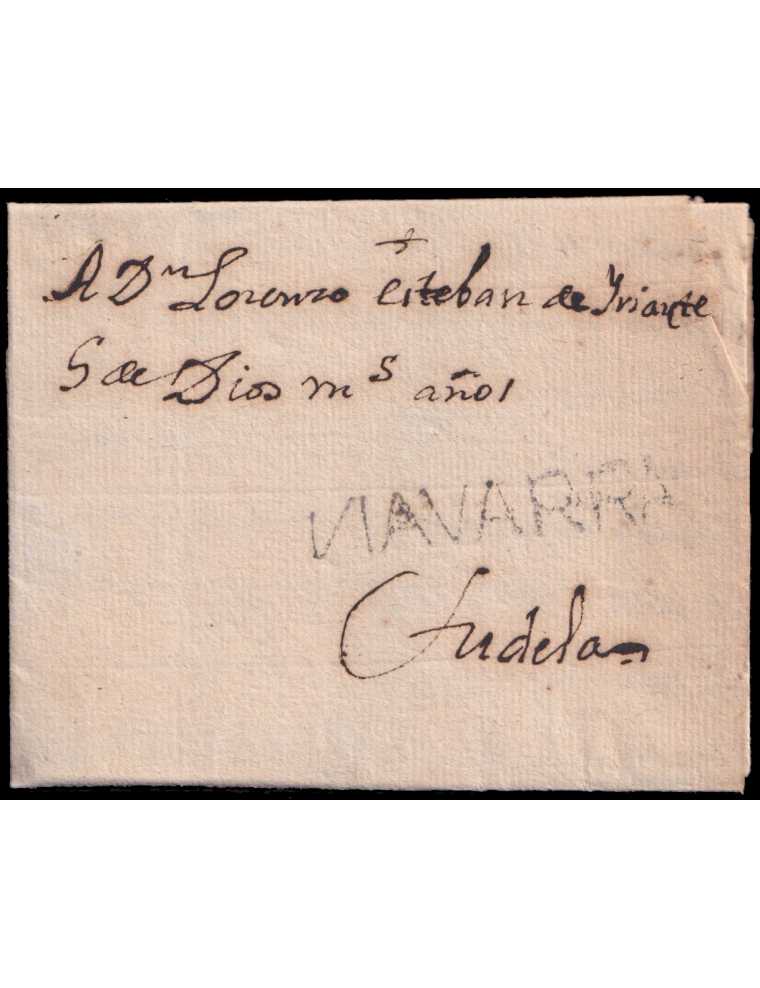 +
A Dⁿ Lorenzo Esteban de Yriarte
G de Dios mˢ años
NAVARRA
Tudela